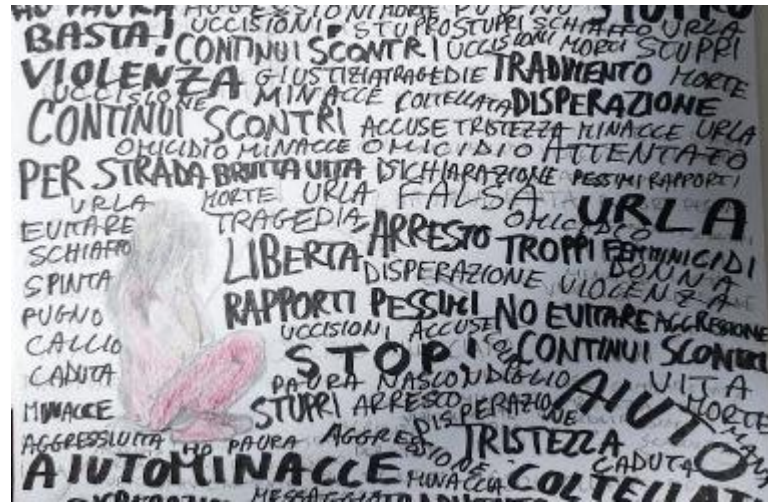 HO PAURA AGGRESSIONI MORTE PUGNO STUPRO
BASTA! UCCISIONI STUPRO STUPRI SCHIAFFO URLA
CONTINUI SCONTRI UCCISIONI MORTI STUPRI
VIOLENZA GIUSTIZIA TRAGEDIE TRADIMENTO MORTE
UCCISIONE MINACCE COLTELLATA DISPERAZIONE
CONTINUI SCONTRI ACCUSE TRISTEZZA MINACCE URLA
OMICIDIO MINACCE OMICIDIO ATTENTATO
PER STRADA BRUTTA VITA DICHIARAZIONE PESSIMI RAPPORTI
URLA MORTE URLA FALSA URLA
EVITARE TRAGEDIA ARRESTO OMICIDIO
SCHIAFFO LIBERTA TROPPI FEMMINICIDI
SPINTA DISPERAZIONE VIOLENZA DONNA
PUGNO RAPPORTI PESSIMI NO EVITARE AGGRESSIONE
CALCIO UCCISIONI ACCUSE
STOP! CONTINUI SCONTRI
CADUTA PAURA NASCONDIGLIO AIUTO VITA
MINACCE STUPRI ARRESTO DISPERAZIONE MORTE
AGGRESSIVITA HO PAURA AGGRESSIONE TRISTEZZA CADUTA
AIUTO MINACCE MINACCIA COLTELLATA
DISPERAZIONE